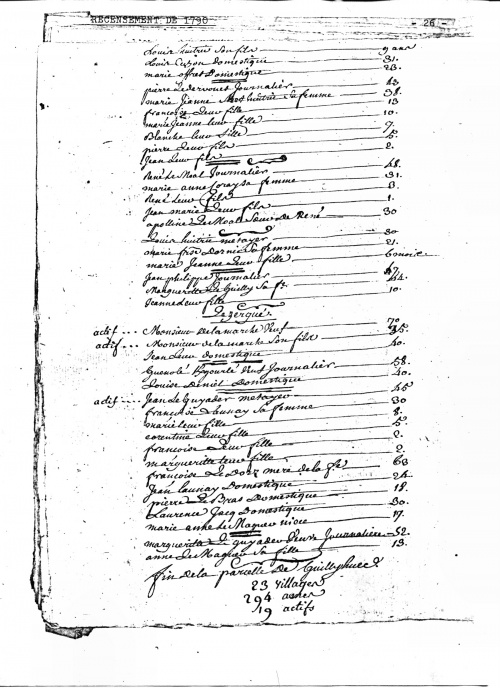 RECENSEMENT DE 1790 - 26 -
Louis huitric Son fils 9 ans
Louis Cuzon Domestique 31.
marie offret Domestique 23.
pierre Le dervouet Journalier 43
marie Jeanne huitric Sa femme 38.
francoise Leur fille 13
marie Jeanne leur fille 10.
Blanche leur fille 7.
pierre Leur fils 5.
Jean Leur fils 2.
René Le Moal Journalier 48.
marie anne Loray sa femme 31.
René Leur fils 3.
Jean marie Leur fils 1.
apolline Le Moal Seur de René 30
Louis huitric metayer 30
marie femme 21.
marie Jeanne Leur fille 6 mois
Jean philippe Journalier 47.
Marguerite Le Quilly Sa fe. 44.
Jeanne Leur fille 10.
Lezergué
actif --- Monsieur de la marche Veuf 70
actif --- Monsieur de la marche Son fils 35.
Jean Domestique 40.
Guenolé Veuf Journalier 58.
Louise Deniel Domestique 40.
actif --- Jean Le Guyader metayer 45
francoise Launay Sa femme 30
marie leur fille 8.
corentine Leur fille 5.
francoise Leur fille 2.
marguerite leur fille 2.
francoise Le Doez mere de la fe 63
Jean Launay Domestique 24.
pierre Le Bras Domestique 18.
Laurence Jacq Domestique 30.
marie anne Le Maguer niece 17.
marguerite Le Guyader Veuve Journaliere 52.
anne Le Maguer Sa fille 13.
fin de la parcelle de Quillyhuec
23 villages
294 ames
19 actifs